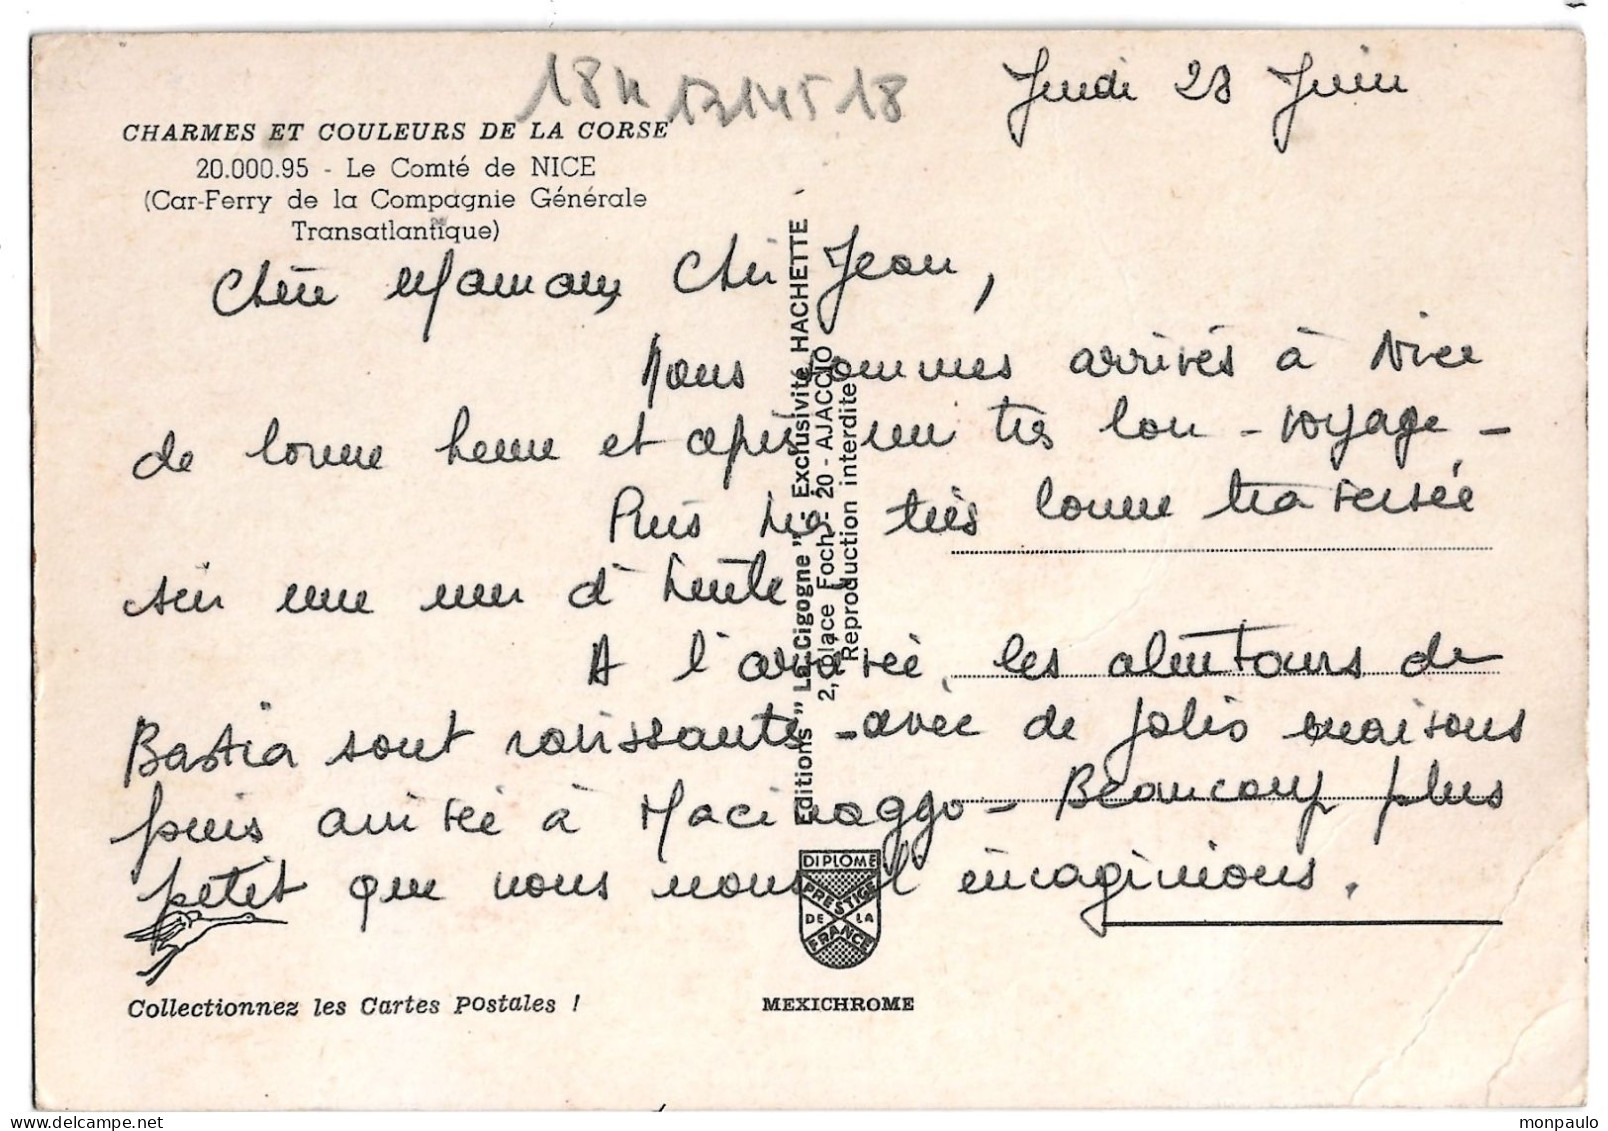 18H 17145 18
Jeudi 28 Juin
CHARMES ET COULEURS DE LA CORSE
20.000.95 - Le Comté de NICE
(Car-Ferry de la Compagnie Générale
Transatlantique)
Chère Maman, Cher Jean,
Nous sommes arrivés à Nice
de bonne heure et après un très bon - voyage -
Puis très très bonne traversée
sur une mer d'huile
A l'arrivée, les alentours de
Bastia sont ravissants - avec de jolis maisons
puis arrivée à Macinaggo - Beaucoup plus
petit que nous nous l'imaginions.
Editions "La Cigogne" - Exclusivité HACHETTE
2, place Foch - 20 - AJACCIO
Reproduction interdite
DIPLOME
PRESTIGE
DE LA
FRANCE
Collectionnez les Cartes Postales !
MEXICHROME
monpaulo